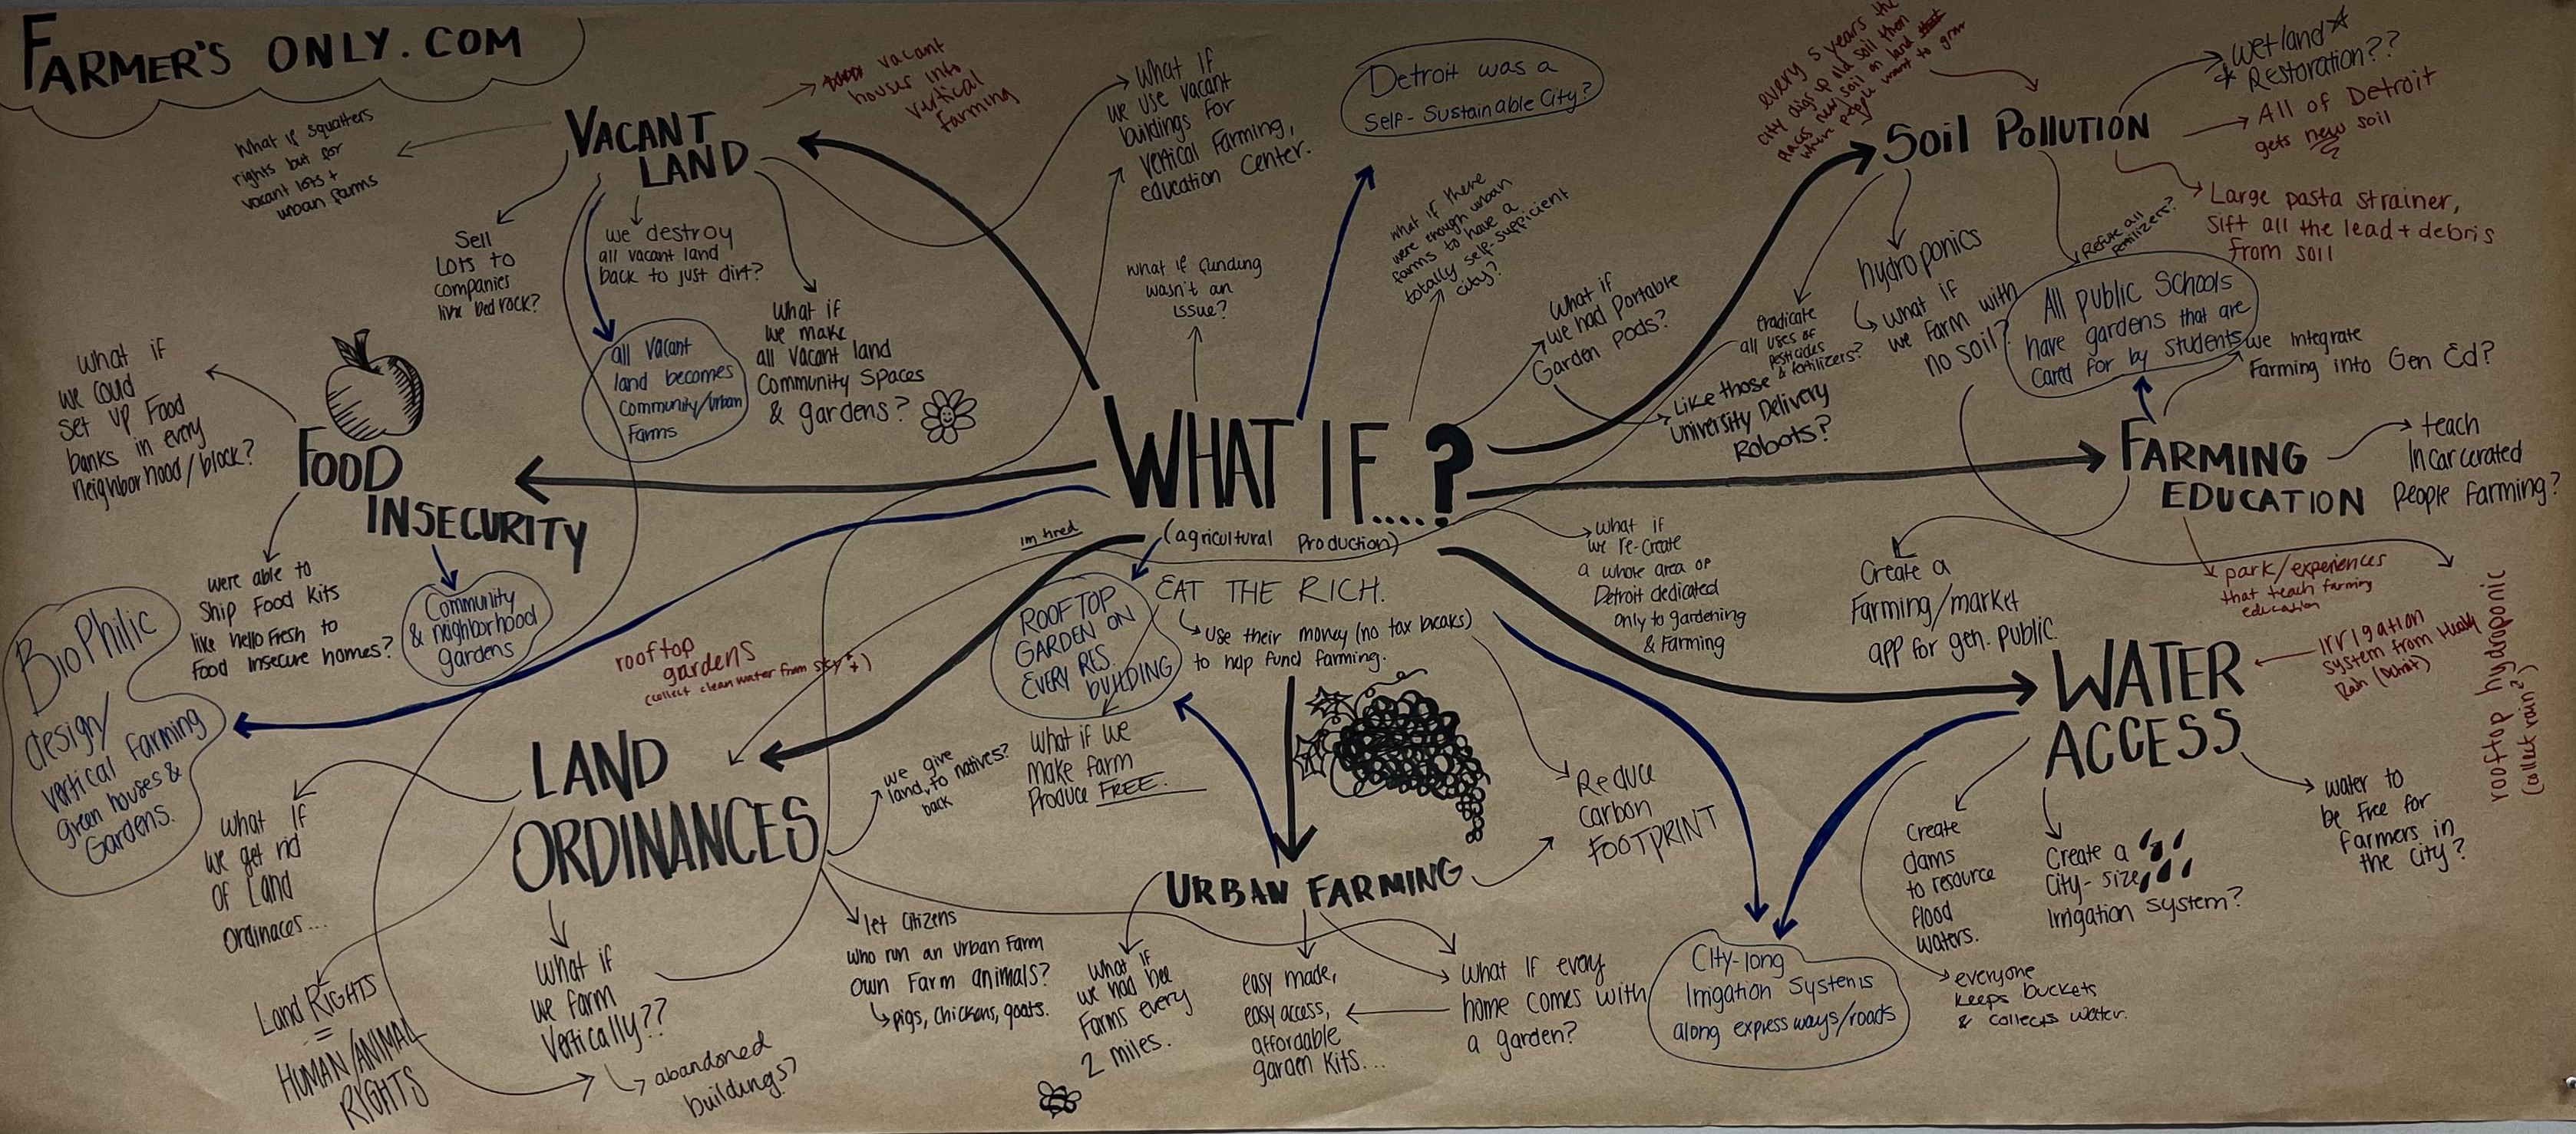 FARMER'S ONLY.COM
VACANT
LAND
vacant
houses into
vertical
farming
What if squatters
rights but for
vacant lots +
urban farms
Sell
Lots to
companies
like bedrock?
we destroy
all vacant land
back to just dirt?
all vacant
land becomes
community/urban
Farms
What if
we make
all vacant land
Community Spaces
& gardens?
What if
we use vacant
buildings for
vertical Farming,
education center.
Detroit was a
Self-Sustainable City?
what if there
were enough urban
farms to have a
totally self-sufficient
city?
what if funding
wasn't an
issue?
What if
we had Portable
Garden pods?
Like those
University Delivery
Robots?
every 5 years the
city digs up old soil then
places new soil on land
where people want to grow
Soil POLLUTION
wetland
Restoration??
All of Detroit
gets new soil
Large pasta strainer,
Sift all the lead + debris
from soil
Refuse all
fertilizers?
hydroponics
what if
we farm with
no soil?
eradicate
all uses of
pesticides
& fertilizers?
All public Schools
have gardens that are
cared for by students
we integrate
Farming into Gen Ed?
FARMING
EDUCATION
teach
Incarcerated
People Farming?
Create a
Farming/market
app for gen. public.
park/experiences
that teach farming
education
WHAT IF....?
(agricultural Production)
im tired
what if
we could
set up Food
banks in every
neighborhood/block?
FOOD
INSECURITY
were able to
Ship Food Kits
like hello Fresh to
Food Insecure homes?
Community
& neighborhood
gardens
BioPhilic
design/
vertical farming
green houses &
Gardens.
rooftop
gardens
(collect clean water from sky)
ROOFTOP
GARDEN ON
EVERY RES.
BUILDING
EAT THE RICH.
Use their money (no tax breaks)
to help fund farming.
what if
we re-create
a whole area of
Detroit dedicated
only to gardening
& Farming
WATER
ACCESS
Irrigation
system from
Rain (Detroit)
rooftop hydroponic
(collect rain?)
water to
be free for
farmers in
the city?
Create a
City-size
Irrigation system?
Create
dams
to resource
flood
waters.
everyone
keeps buckets
& collects water.
City-long
Irrigation Systems
along expressways/roads
LAND
ORDINANCES
we give
land to natives?
back
What if we
make farm
Produce FREE.
what if
we get rid
of Land
Ordinaces...
Land RIGHTS
=
HUMAN/ANIMAL
RIGHTS
what if
we farm
Vertically??
abandoned
buildings?
let citizens
who run an Urban Farm
own Farm animals?
pigs, chickens, goats.
URBAN FARMING
Reduce
Carbon
FOOTPRINT
What if
we had bee
Farms every
2 miles.
easy made,
easy access,
affordable
garden kits...
What if every
home comes with
a garden?